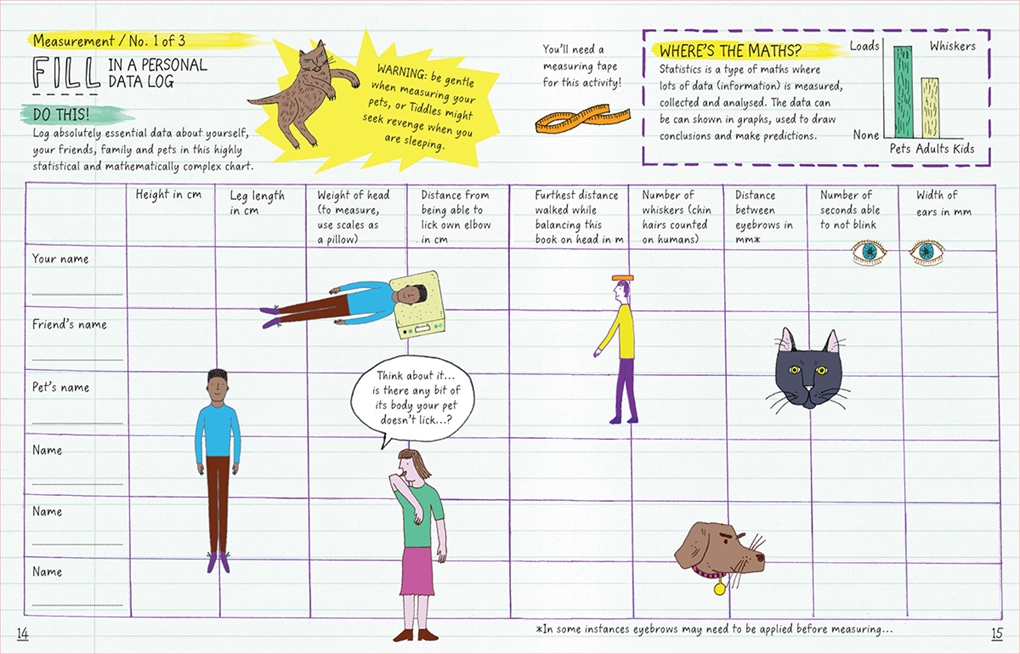 Measurement / No. 1 of 3
FILL IN A PERSONAL
DATA LOG
DO THIS!
Log absolutely essential data about yourself,
your friends, family and pets in this highly
statistical and mathematically complex chart.
WARNING: be gentle
when measuring your
pets, or Tiddles might
seek revenge when you
are sleeping.
You'll need a
measuring tape
for this activity!
WHERE'S THE MATHS?
Statistics is a type of maths where
lots of data (information) is measured,
collected and analysed. The data can
be can shown in graphs, used to draw
conclusions and make predictions.
Loads
Whiskers
None
Pets Adults Kids
Height in cm
Leg length
in cm
Weight of head
(to measure,
use scales as
a pillow)
Distance from
being able to
lick own elbow
in cm
Furthest distance
walked while
balancing this
book on head in m
Number of
whiskers (chin
hairs counted
on humans)
Distance
between
eyebrows in
mm*
Number of
seconds able
to not blink
Width of
ears in mm
Your name
Friend's name
Pet's name
Name
Name
Name
Think about it...
is there any bit of
its body your pet
doesn't lick...?
*In some instances eyebrows may need to be applied before measuring...
14
15